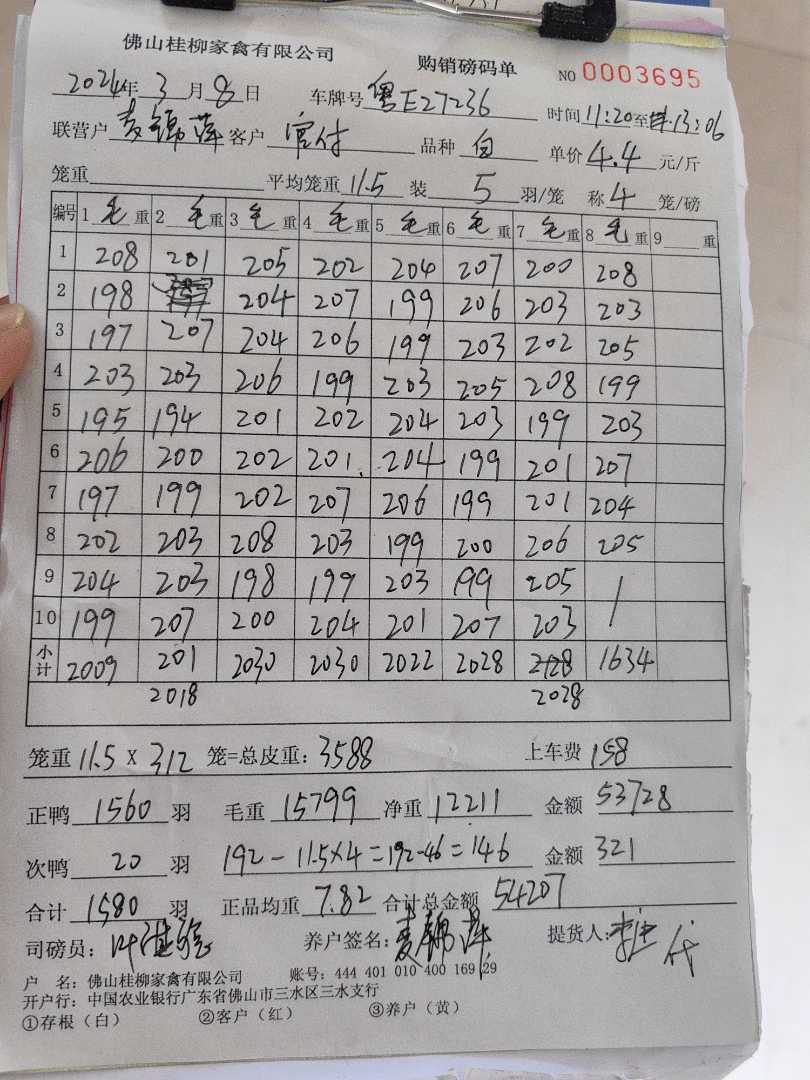 佛山桂柳家禽有限公司 购销磅码单 NO 0003695
2024年 3 月 8 日 车牌号 粤E27236 时间 11:20至13:06
联营户 麦锦萍 客户 官付 品种 白 单价 4.4 元/斤
笼重 平均笼重 11.5 装 5 羽/笼 称 4 笼/磅
编号 1 毛 重 2 毛 重 3 毛 重 4 毛 重 5 毛 重 6 毛 重 7 毛 重 8 毛 重 9 重
1 208 201 205 202 204 207 200 208
2 198 204 207 199 206 203 203
3 197 207 204 206 199 203 202 205
4 203 203 206 199 203 205 208 199
5 195 194 201 202 204 203 199 203
6 206 200 202 201 204 199 201 207
7 197 199 202 207 206 199 201 204
8 202 203 208 203 199 200 206 205
9 204 203 198 199 203 199 205
10 199 207 200 204 201 207 203
小计 2009 201 2030 2030 2022 2028 2128 1634
2018 2028
笼重 11.5 X 312 笼=总皮重: 3588 上车费 158
正鸭 1560 羽 毛重 15799 净重 12211 金额 53728
次鸭 20 羽 192-11.5×4=192-46=146 金额 321
合计 1580 羽 正品均重 7.82 合计总金额 54207
司磅员: 养户签名: 麦锦萍 提货人: 代
户 名: 佛山桂柳家禽有限公司 账号: 444 401 010 400 169 29
开户行: 中国农业银行广东省佛山市三水区三水支行
①存根(白) ②客户(红) ③养户(黄)